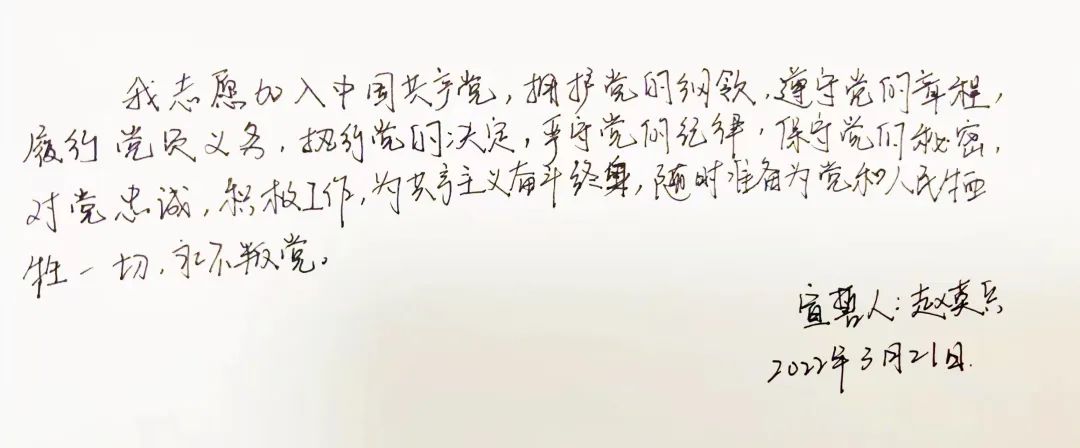 我志愿加入中国共产党，拥护党的纲领，遵守党的章程，
履行党员义务，执行党的决定，严守党的纪律，保守党的秘密，
对党忠诚，积极工作，为共产主义奋斗终身，随时准备为党和人民牺
牲一切，永不叛党。
宣誓人：赵英兵
2022年3月21日.